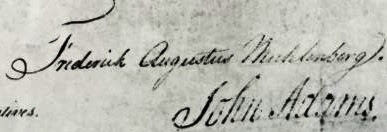 Frederick Augustus Muhlenberg
John Adams.